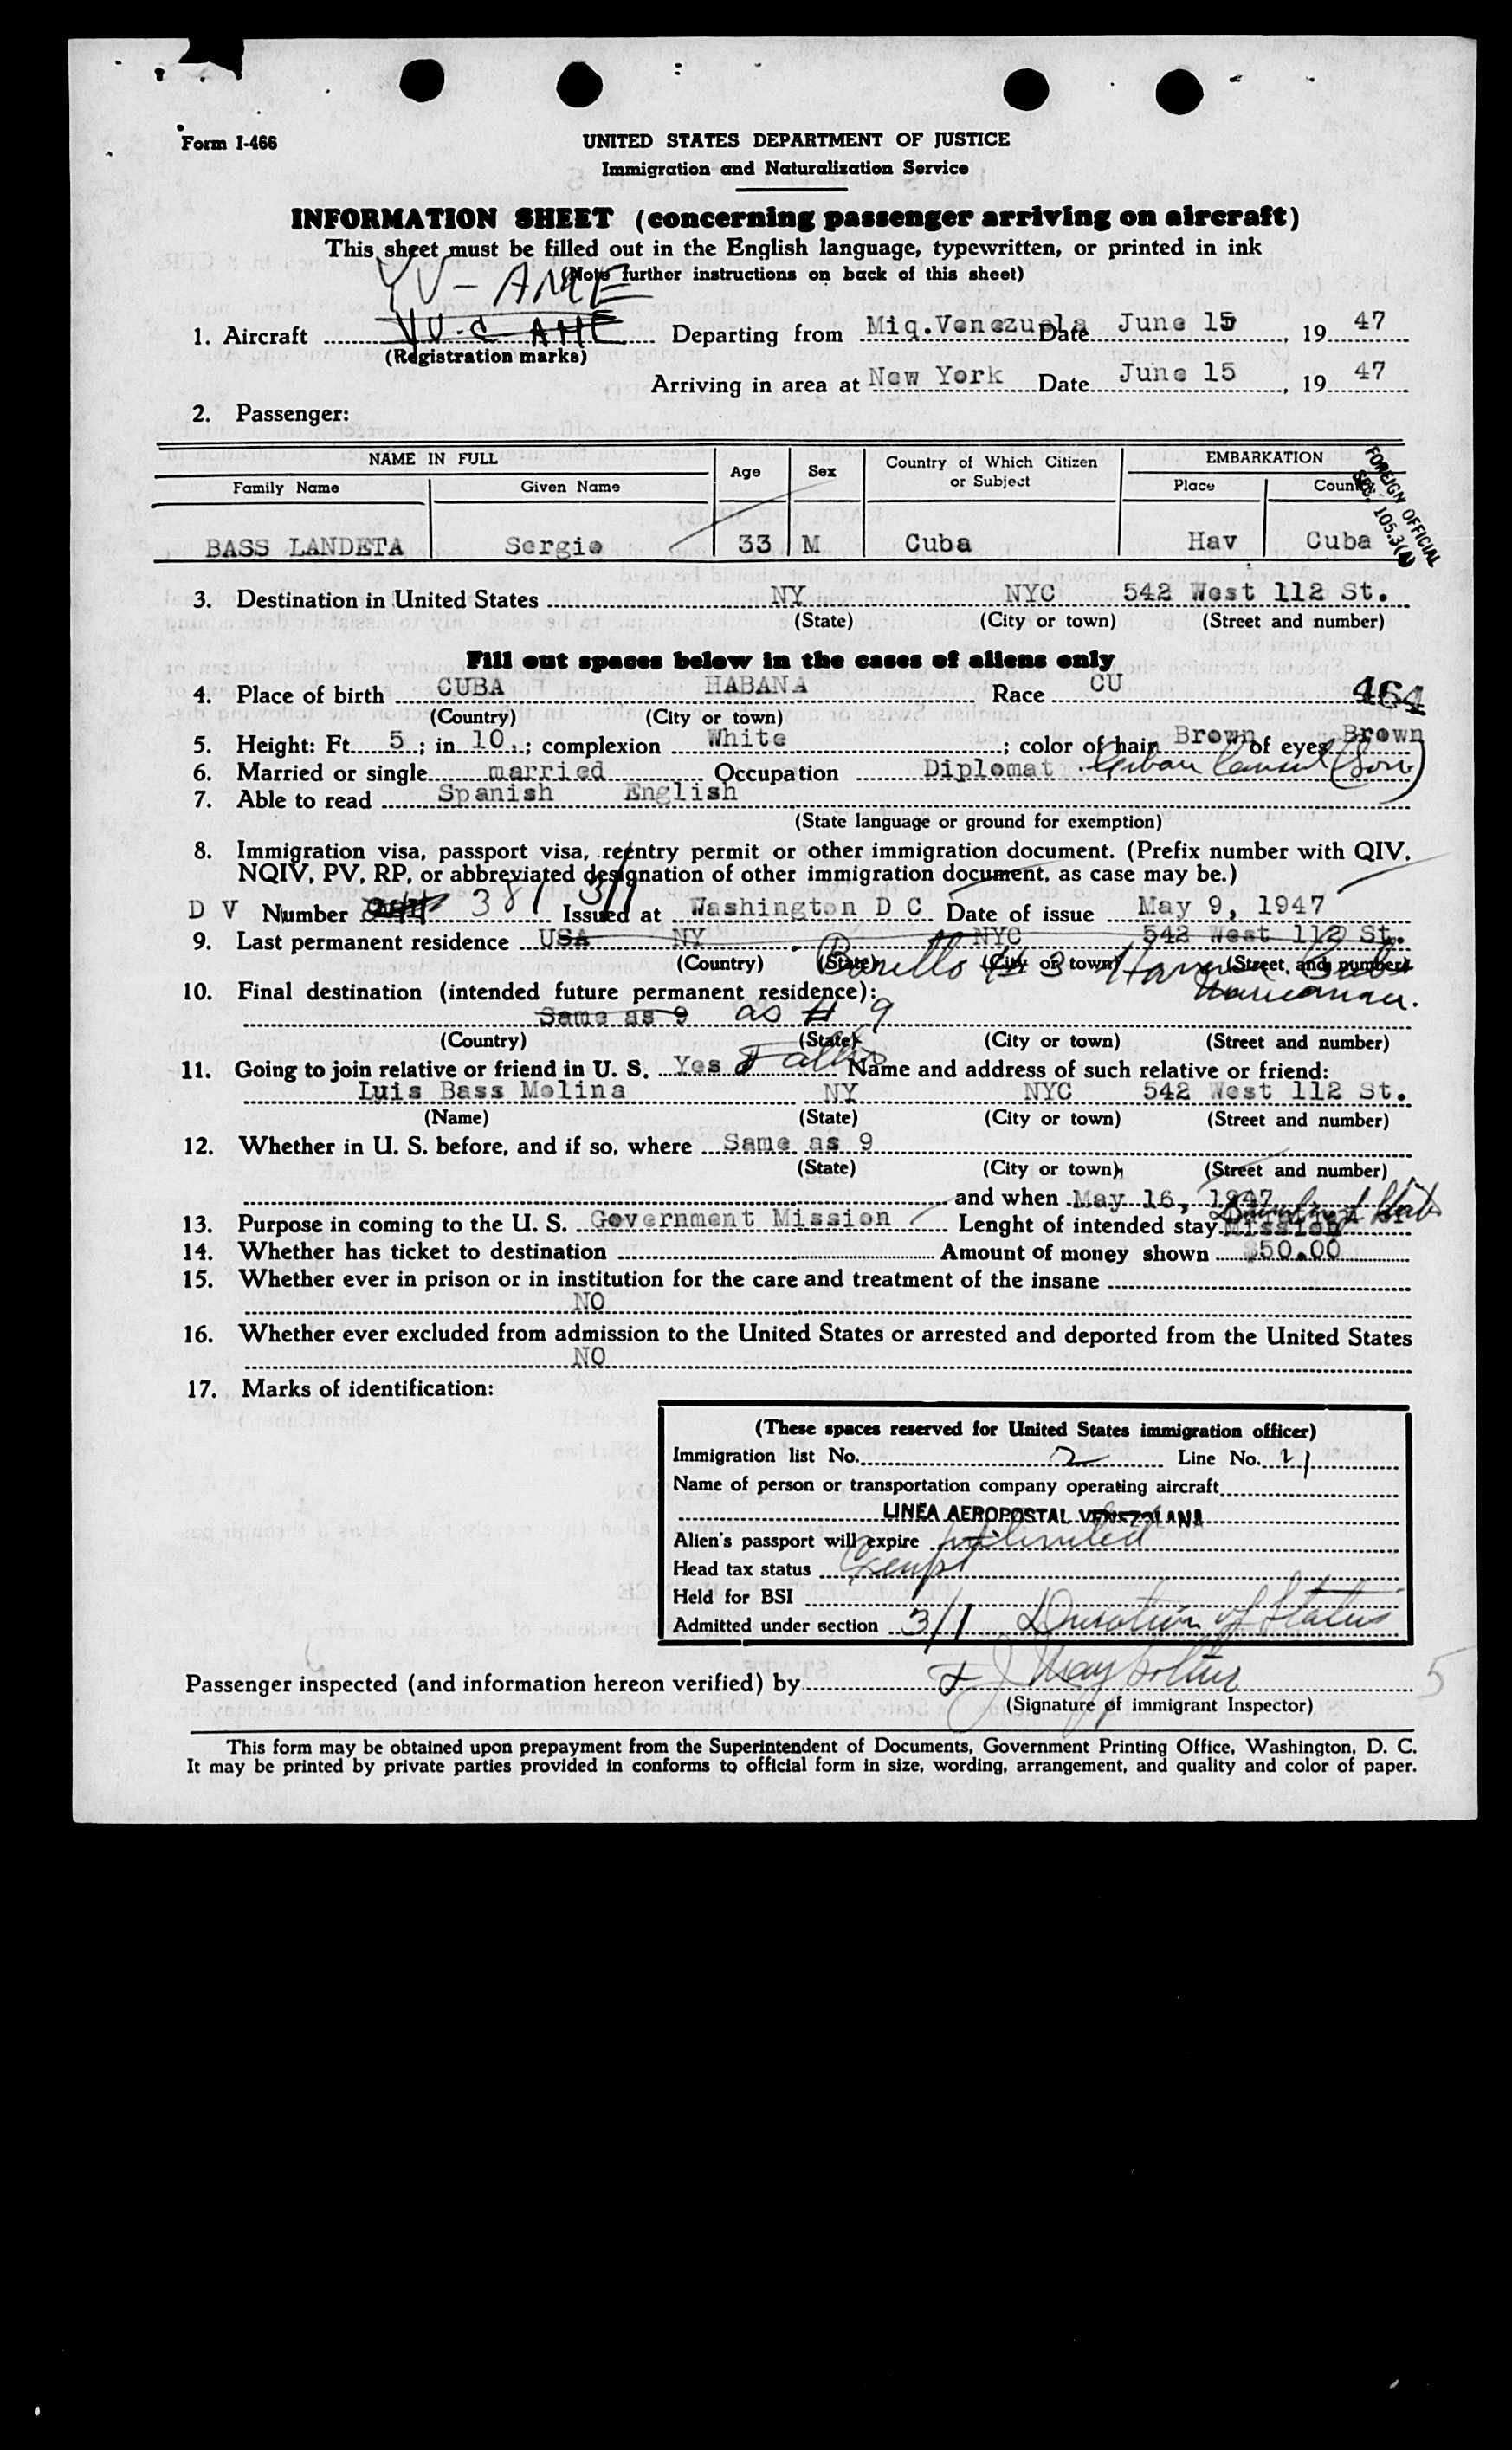 Form I-466
UNITED STATES DEPARTMENT OF JUSTICE
Immigration and Naturalization Service
INFORMATION SHEET (concerning passenger arriving on aircraft)
This sheet must be filled out in the English language, typewritten, or printed in ink
(Note further instructions on back of this sheet)
YV-AME
1. Aircraft YV-C-AME Departing from Miq.Venezuela Date June 15, 19 47
(Registration marks)
Arriving in area at New York Date June 15, 19 47
2. Passenger:
NAME IN FULL Age Sex Country of Which Citizen or Subject EMBARKATION
Family Name Given Name Place Country
FOREIGN OFFICIAL
SEC. 105.3(4)
BASS LANDETA Sergio 33 M Cuba Hav Cuba
3. Destination in United States NY NYC 542 West 112 St.
(State) (City or town) (Street and number)
Fill out spaces below in the cases of aliens only
4. Place of birth CUBA HABANA Race CU 464
(Country) (City or town)
5. Height: Ft. 5; in. 10.; complexion White; color of hair Brown of eyes Brown
6. Married or single married Occupation Diplomat Cuban Consul (Son)
7. Able to read Spanish English
(State language or ground for exemption)
8. Immigration visa, passport visa, reentry permit or other immigration document. (Prefix number with QIV,
NQIV, PV, RP, or abbreviated designation of other immigration document, as case may be.)
D V Number 381 3/1 Issued at Washington D C Date of issue May 9, 1947
9. Last permanent residence USA NY NYC 542 West 112 St.
(Country) (State) (City or town) (Street, and number)
# 3 Havana Cuba
10. Final destination (intended future permanent residence):
Same as 9 as # 9
(Country) (State) (City or town) (Street and number)
11. Going to join relative or friend in U. S. Yes Father Name and address of such relative or friend:
Luis Bass Molina NY NYC 542 West 112 St.
(Name) (State) (City or town) (Street and number)
12. Whether in U. S. before, and if so, where Same as 9
(State) (City or town) (Street and number)
and when May 16, 1947
13. Purpose in coming to the U. S. Government Mission Lenght of intended stay Mission
14. Whether has ticket to destination Amount of money shown $50.00
15. Whether ever in prison or in institution for the care and treatment of the insane
NO
16. Whether ever excluded from admission to the United States or arrested and deported from the United States
NO
17. Marks of identification:
(These spaces reserved for United States immigration officer)
Immigration list No. 2 Line No. 21
Name of person or transportation company operating aircraft
LINEA AEROPOSTAL VENEZOLANA
Alien's passport will expire unlimited
Head tax status Exempt
Held for BSI
Admitted under section 3/1 Duration of Status
Passenger inspected (and information hereon verified) by
5
(Signature of immigrant Inspector)
This form may be obtained upon prepayment from the Superintendent of Documents, Government Printing Office, Washington, D. C.
It may be printed by private parties provided in conforms to official form in size, wording, arrangement, and quality and color of paper.